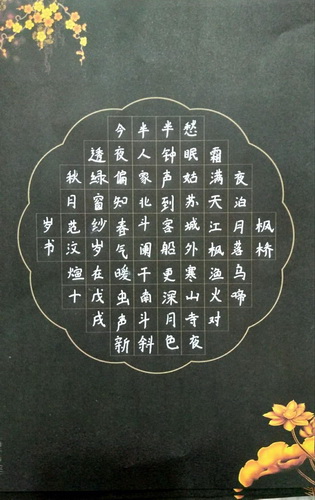 枫桥
夜泊月落乌啼
霜满天江枫渔火对
愁眠姑苏城外寒山寺夜
半钟声到客船更深月色
半人家北斗阑干南斗斜
今夜偏知春气暖虫声新
透绿窗纱岁在戊戌
秋月范汶煊十
岁书